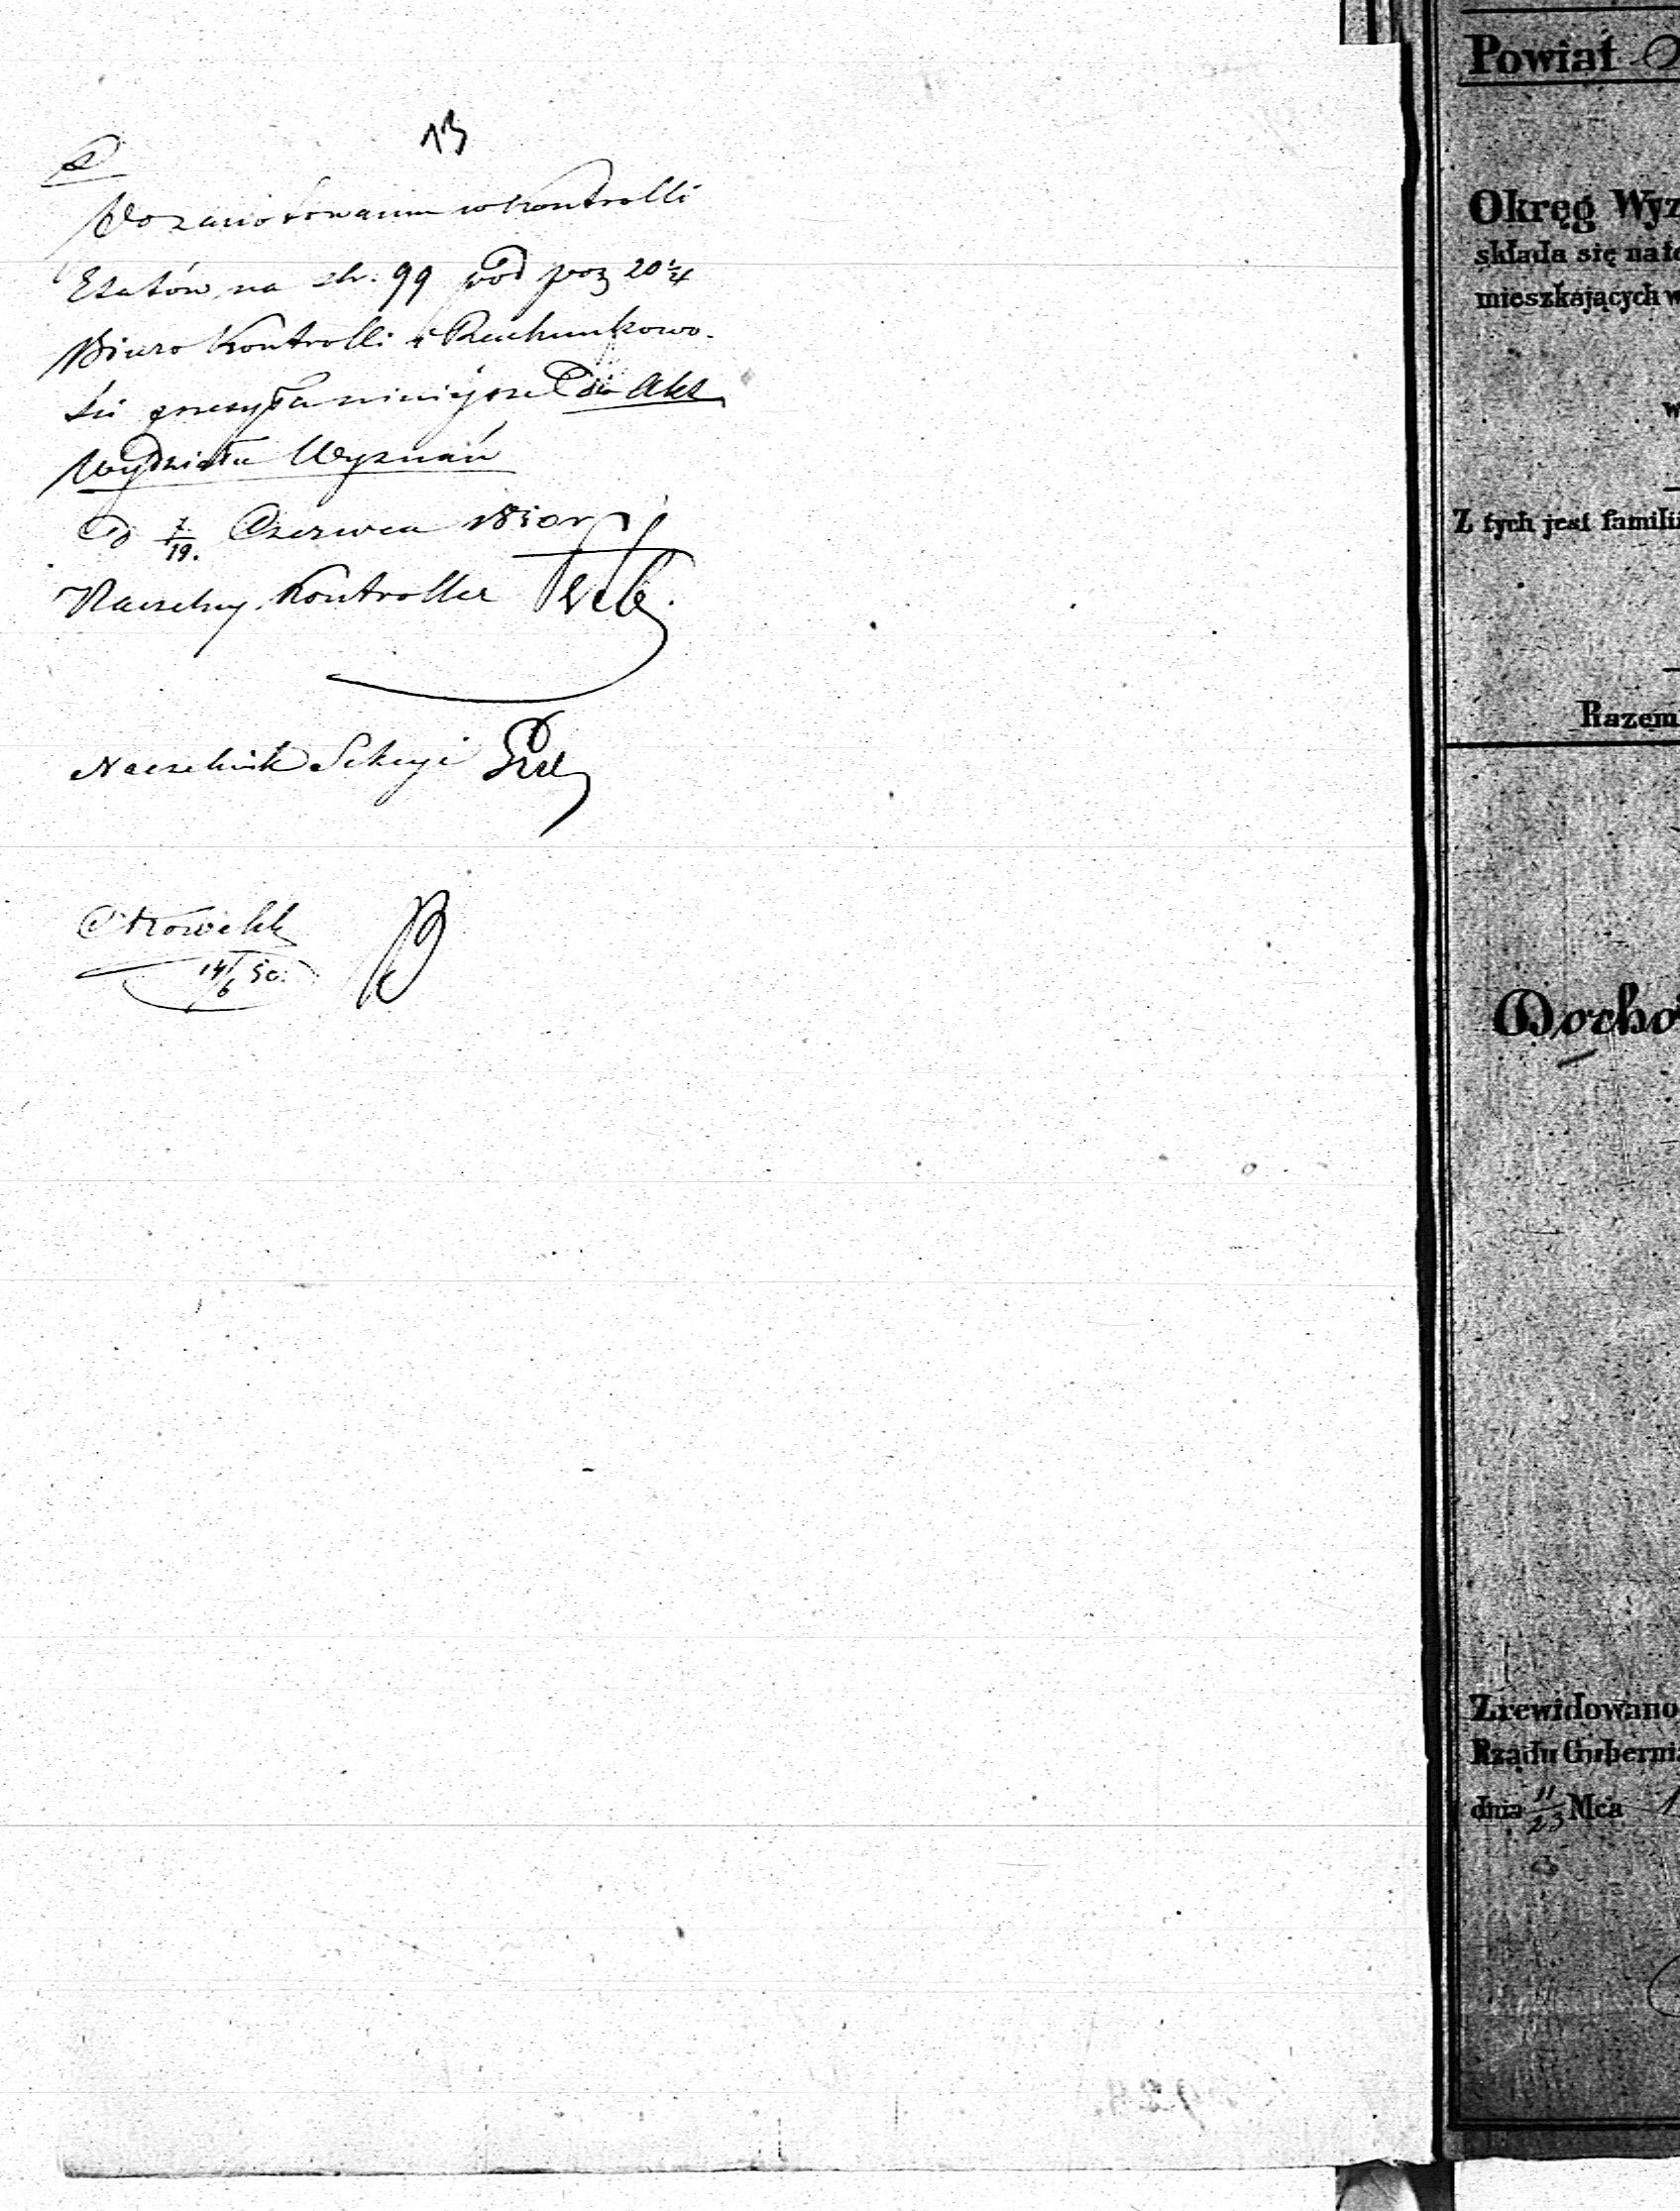 13
Po zanotowaniu w Kontrolli
Etatów na str. 99 pod poz 20
Biuro Kontrolli i Rachunkowo-
ści przesyła niniejsze do Akt
Wydziału Wyznań
D 7/19. Czerwca 1850 r
Naczelny Kontroller
Naczelnik Sekcyi
14/6 50.
Powiat
Okręg Wyz
składa się na te
mieszkających w
w
Z tych jest famili
Razem
Docho
Zrewidowano
Rządu Guberni
dnia 11/23 Mca